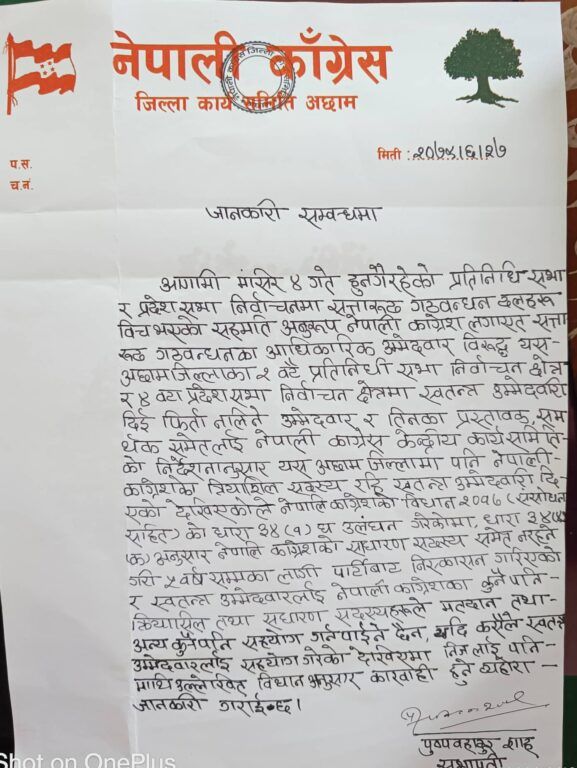 नेपाली काँग्रेस
जिल्ला कार्य समिति अछाम
मिती : २०७९।६।२७
प.स.
च.नं.
जानकारी सम्वन्धमा
आगामी मंसिर ४ गते हुनगैरहेको प्रतिनिधि सभा
र प्रदेश सभा निर्वाचनमा सत्तारूढ गठवन्धन दलहरू
विच भएको सहमति अनुरूप नेपाली काग्रेस लगायत सत्ता
रूढ गठवन्धनका आधिकारिक उम्मेदवार विरूद्ध यस
अछामजिल्लाका २ वटै प्रतिनिधी सभा निर्वाचन क्षेत्र
र ४ वटा प्रदेशसभा निर्वाचन क्षेत्रमा स्वतन्त्र उम्मेदवारी
दिई फिर्ता नलिने उम्मेदवार र तिनका प्रस्तावक सम
र्थक समेतलाई नेपाली काग्रेस केन्द्रीय कार्यसमिति
को निर्देशनानुसार यस अछाम जिल्लामा पनि नेपाली
काग्रेसको क्रियाशिल सदस्य रही स्वतन्त्र उम्मेदवारी दि
एको देखिएकोले नेपाली काग्रेसको विधान २०१७ (संसोधन
सहित) को धारा ३४ (१) घ उलंघन गरेकोमा, धारा ३४
(क) अनुसार नेपाली काग्रेसको साधारण सदस्य समेत नरहने
गरी ५ वर्ष सम्मका लागी पार्टीबाट निस्कासन गरिएको
र स्वतन्त्र उम्मेदवारलाई नेपाली काग्रेसका कुनै पनि
क्रियाशिल तथा सधारण सदस्यहरूले मतदान तथा
अन्य कुनैपनि सहयोग गर्नपाईने छैन, यदि कसैले स्वतन्त्र
उम्मेदवारलाई सहयोग गरेको देखिएमा निजलाई पनि
माथि उल्लेखित विधान अनुसार कारवाही हुने व्यहोरा
जानकारी गराई छ।
पुष्पवहादुर शाह
सभापती
Shot on OnePlus